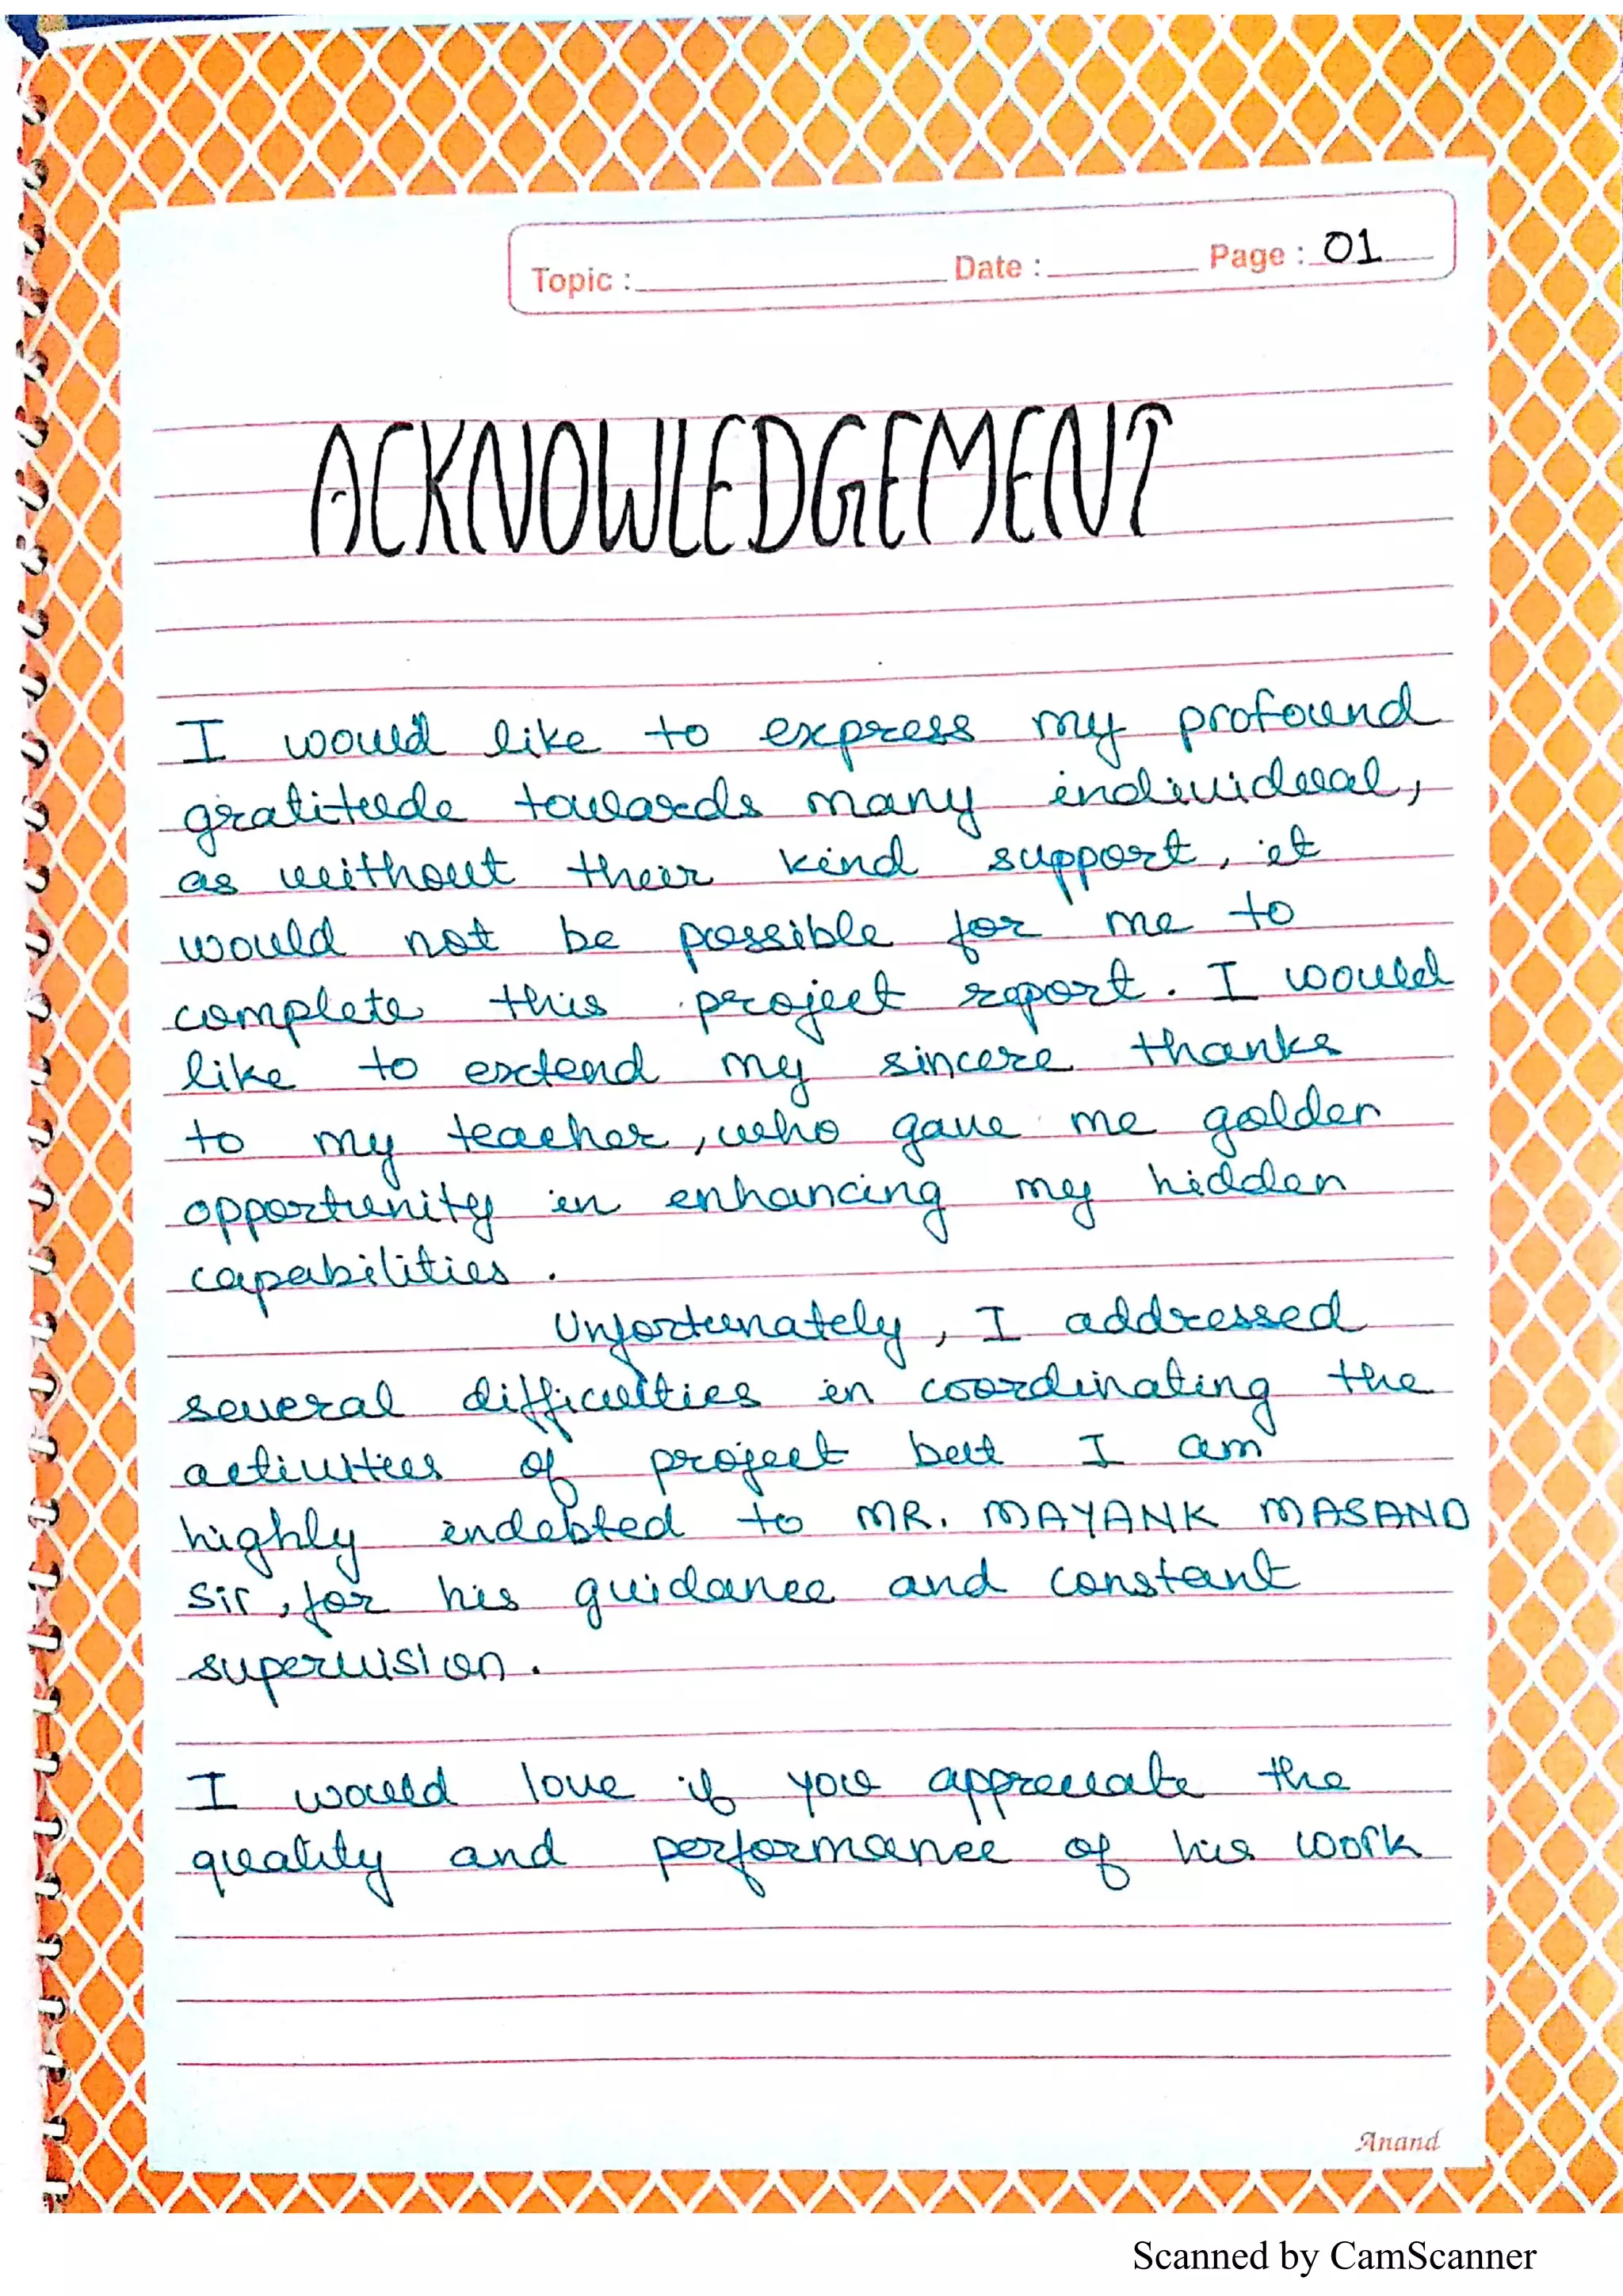 Topic : Date : Page : 01
ACKNOWLEDGEMENT
I would like to express my profound
gratitude towards many individual,
as without their kind support, it
would not be possible for me to
complete this project report. I would
like to extend my sincere thanks
to my teacher, who gave me golden
opportunity in enhancing my hidden
capabilities.
Unfortunately, I addressed
several difficulties in coordinating the
activities of project but I am
highly indebted to MR. MAYANK MASAND
Sir, for his guidance and constant
supervision.
I would love if you appreciate the
quality and performance of his work
Anand
Scanned by CamScanner